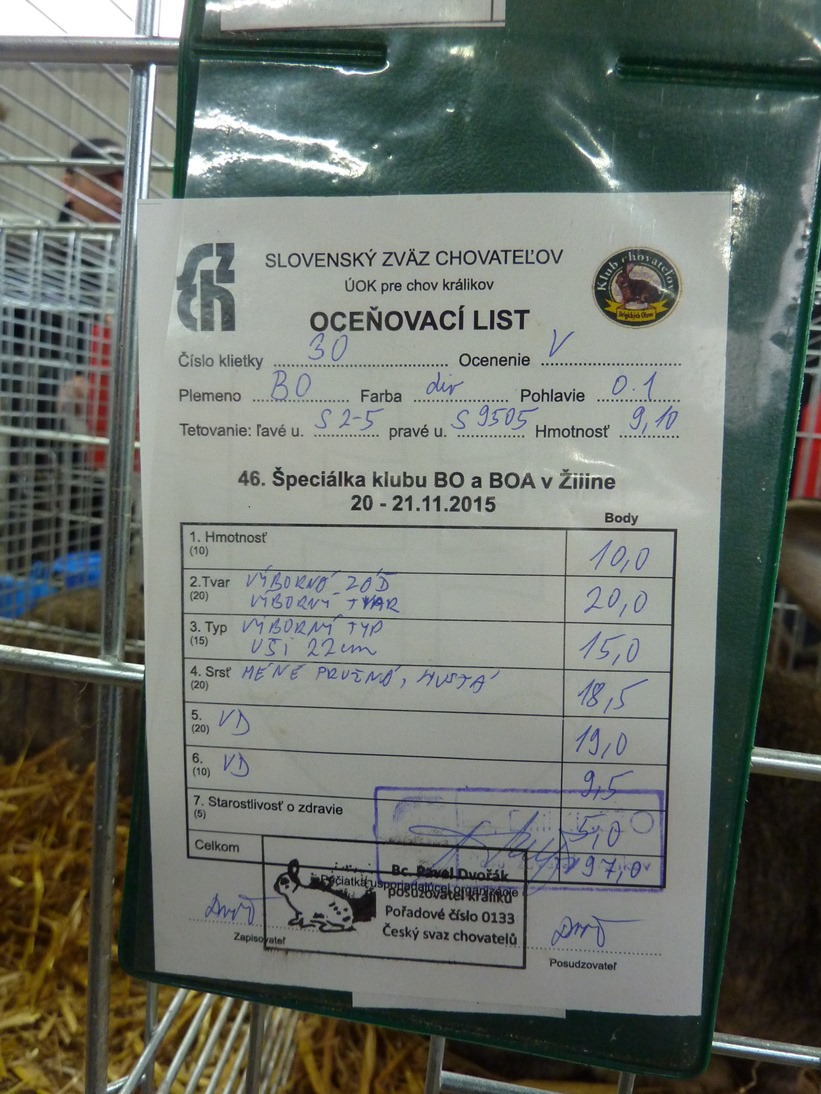 SLOVENSKÝ ZVÄZ CHOVATEĽOV
ÚOK pre chov králikov
OCEŇOVACÍ LIST
Klub chovateľov
Belgických Obrov
Číslo klietky 30 Ocenenie V
Plemeno BO Farba div Pohlavie 0.1
Tetovanie: ľavé u. S 2-5 pravé u. S 9505 Hmotnosť 9,10
46. Špeciálka klubu BO a BOA v Žiiine
20 - 21.11.2015
Body
1. Hmotnosť (10) 10,0
2.Tvar VÝBORNÁ ZÁĎ
(20) VÝBORNÝ TVAR 20,0
3. Typ VÝBORNÝ TYP
(15) UŠI 22cm 15,0
4. Srsť MÉNĚ PRUŽNÁ, HUSTÁ
(20) 18,5
5. VD
(20) 19,0
6. VD
(10) 9,5
7. Starostlivosť o zdravie
(5) 5,0
Celkom 97,0
Pečiatka usporiadajúcej organizácie
Bc. Pavel Dvořák
posuzovatel králíků
Pořadové číslo 0133
Český svaz chovatelů
Zapisovateľ
Posudzovateľ